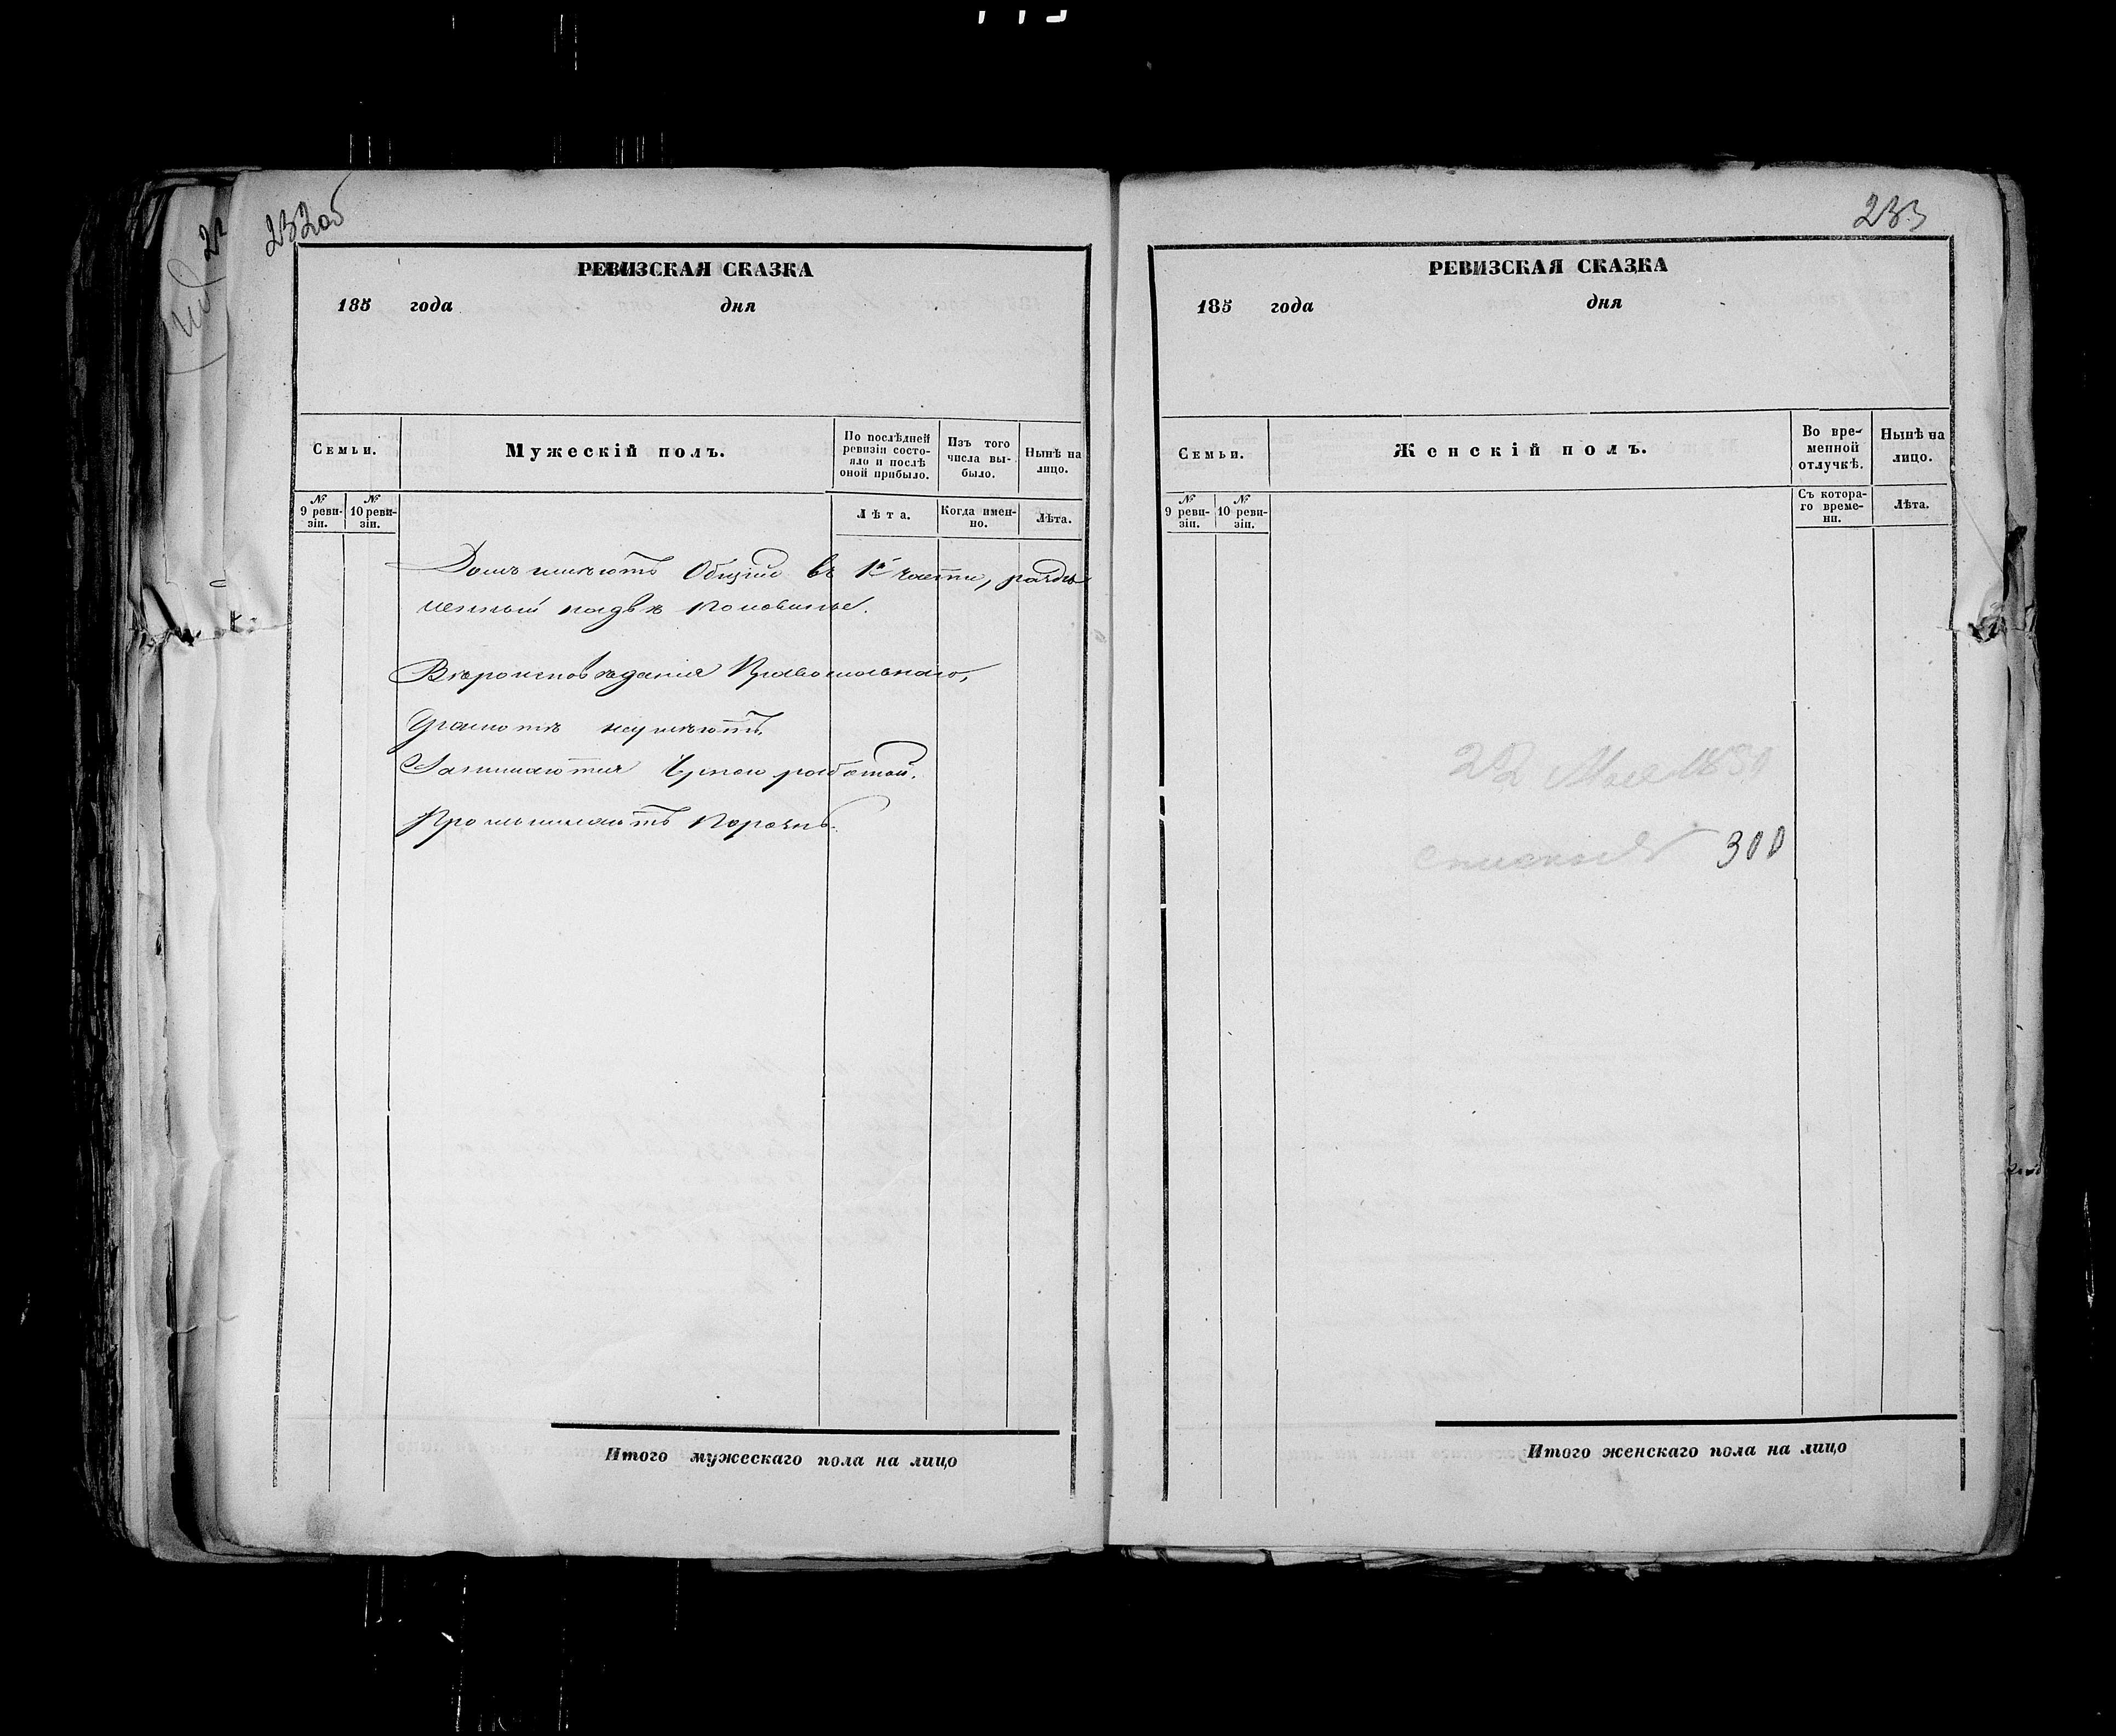 232об
РЕВИЗСКАЯ СКАЗКА
185 года дня
Семьи.
Мужескій полъ.
По послѣдней ревизіи состояло и послѣ оной прибыло.
Изъ того числа выбыло.
Нынѣ на лицо.
№ 9 ревизіи.
№ 10 ревизіи.
Лѣта.
Когда именно.
Лѣта.
Домъ имѣютъ Общій въ 1й части, раздѣ
ленный на двѣ половины.
Вѣроисповѣданія Православнаго,
Грамотѣ неумѣютъ
Занимаются Чрною работой.
Промышляютъ Порознь.
Итого мужескаго пола на лицо
233
РЕВИЗСКАЯ СКАЗКА
185 года дня
Семьи.
Женскій полъ.
Во временной отлучкѣ.
Нынѣ на лицо.
№ 9 ревизіи.
№ 10 ревизіи.
Съ котораго времени.
Лѣта.
22 Мая 185
300
Итого женскаго пола на лицо